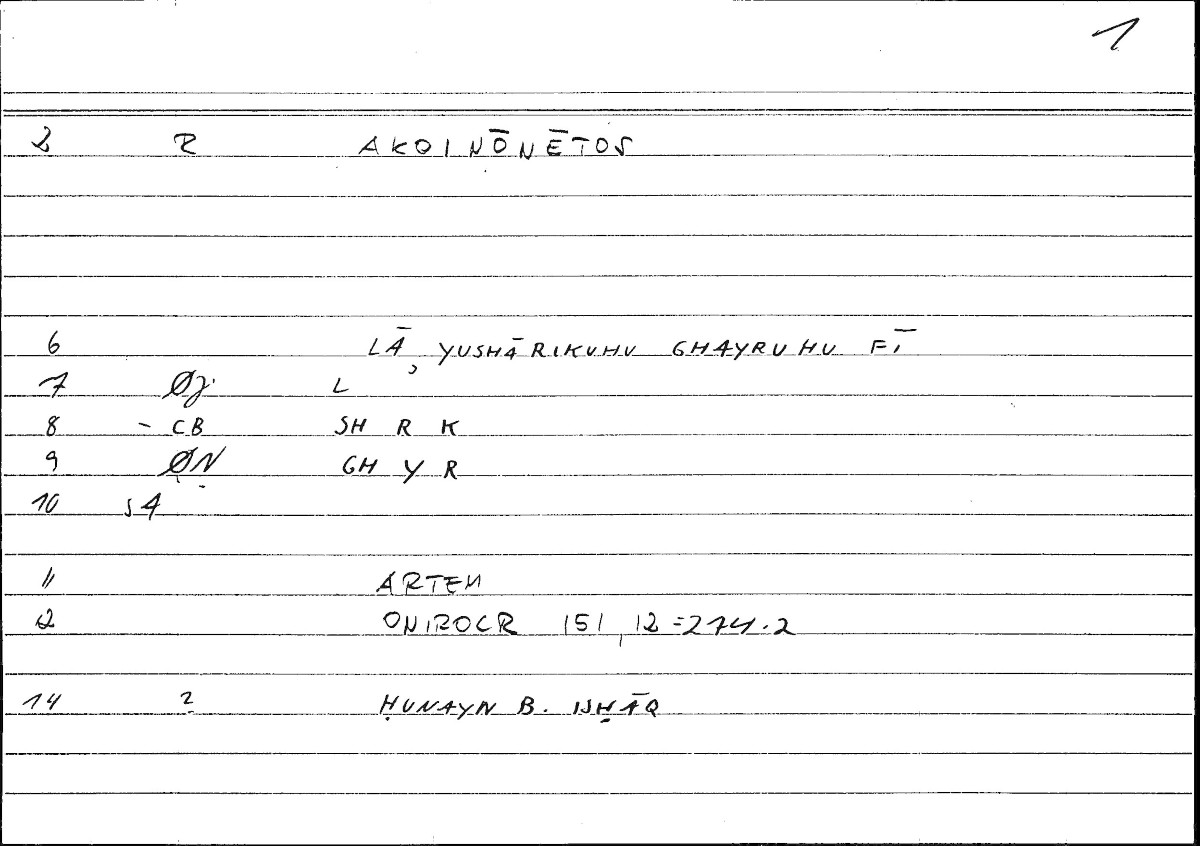 1
2 R AKOINŌNĒTOS
6 LĀ, YUSHĀRIKUHU GHAYRUHU FĪ
7 Øj. L
8 - CB SH R K
9 ØN GH Y R
10 54
11 ARTEM
2 ONIROCR 151,12=274.2
14 2 ḤUNAYN B. ISḤĀQ